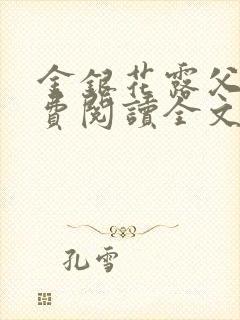 金銀花露父
費閱讀全文
孔雪